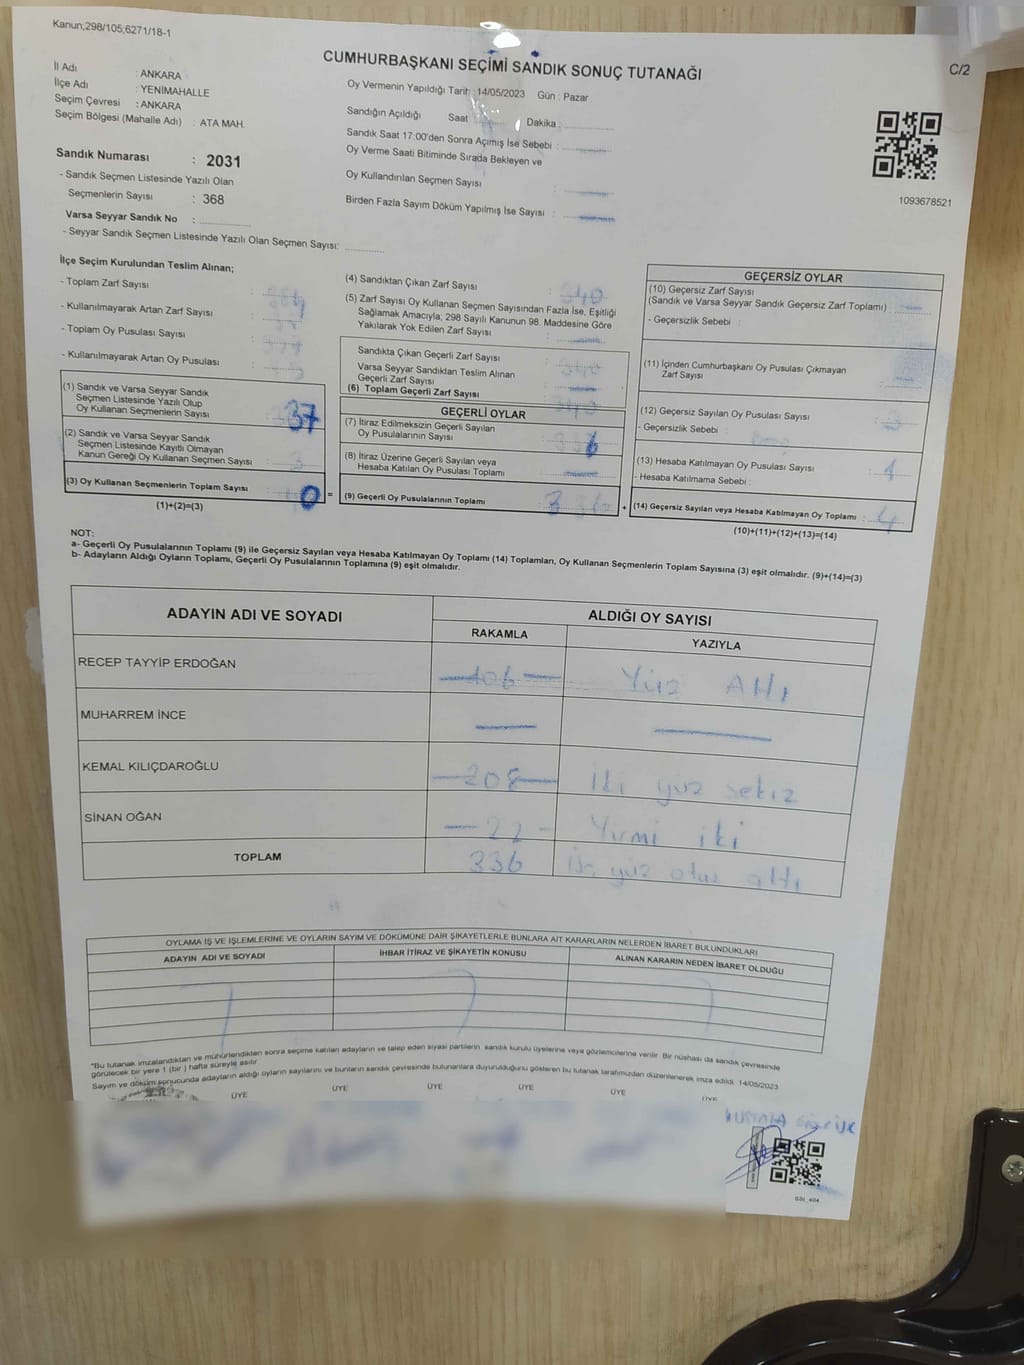 Kanun;298/105;6271/18-1
CUMHURBAŞKANI SEÇİMİ SANDIK SONUÇ TUTANAĞI
C/2
İl Adı : ANKARA
İlçe Adı : YENİMAHALLE
Seçim Çevresi : ANKARA
Seçim Bölgesi (Mahalle Adı) : ATA MAH.
Oy Vermenin Yapıldığı Tarih : 14/05/2023 Gün : Pazar
Sandığın Açıldığı Saat Dakika :
Sandık Saat 17:00'den Sonra Açımış İse Sebebi :
Oy Verme Saati Bitiminde Sırada Bekleyen ve
Oy Kullandırılan Seçmen Sayısı :
Birden Fazla Sayım Döküm Yapılmış İse Sayısı :
1093678521
Sandık Numarası : 2031
- Sandık Seçmen Listesinde Yazılı Olan
Seçmenlerin Sayısı : 368
Varsa Seyyar Sandık No :
- Seyyar Sandık Seçmen Listesinde Yazılı Olan Seçmen Sayısı:
İlçe Seçim Kurulundan Teslim Alınan;
- Toplam Zarf Sayısı :
- Kullanılmayarak Artan Zarf Sayısı :
- Toplam Oy Pusulası Sayısı :
- Kullanılmayarak Artan Oy Pusulası :
(1) Sandık ve Varsa Seyyar Sandık
Seçmen Listesinde Yazılı Olup
Oy Kullanan Seçmenlerin Sayısı : 337
(2) Sandık ve Varsa Seyyar Sandık
Seçmen Listesinde Kayıtlı Olmayan
Kanun Gereği Oy Kullanan Seçmen Sayısı : 3
(3) Oy Kullanan Seçmenlerin Toplam Sayısı : 340
(1)+(2)=(3)
(4) Sandıktan Çıkan Zarf Sayısı : 340
(5) Zarf Sayısı Oy Kullanan Seçmen Sayısından Fazla İse, Eşitliği
Sağlamak Amacıyla; 298 Sayılı Kanunun 98. Maddesine Göre
Yakılarak Yok Edilen Zarf Sayısı :
Sandıkta Çıkan Geçerli Zarf Sayısı : 340
Varsa Seyyar Sandıktan Teslim Alınan
Geçerli Zarf Sayısı :
(6) Toplam Geçerli Zarf Sayısı : 340
GEÇERLİ OYLAR
(7) İtiraz Edilmeksizin Geçerli Sayılan
Oy Pusulalarının Sayısı : 336
(8) İtiraz Üzerine Geçerli Sayılan veya
Hesaba Katılan Oy Pusulası Toplamı :
= (9) Geçerli Oy Pusulalarının Toplamı : 336
GEÇERSİZ OYLAR
(10) Geçersiz Zarf Sayısı
(Sandık ve Varsa Seyyar Sandık Geçersiz Zarf Toplamı) :
- Geçersizlik Sebebi :
(11) İçinden Cumhurbaşkanı Oy Pusulası Çıkmayan
Zarf Sayısı :
(12) Geçersiz Sayılan Oy Pusulası Sayısı : 3
- Geçersizlik Sebebi :
(13) Hesaba Katılmayan Oy Pusulası Sayısı : 1
- Hesaba Katılmama Sebebi :
+ (14) Geçersiz Sayılan veya Hesaba Katılmayan Oy Toplamı : 4
(10)+(11)+(12)+(13)=(14)
NOT:
a- Geçerli Oy Pusulalarının Toplamı (9) ile Geçersiz Sayılan veya Hesaba Katılmayan Oy Toplamı (14) Toplamları, Oy Kullanan Seçmenlerin Toplam Sayısına (3) eşit olmalıdır. (9)+(14)=(3)
b- Adayların Aldığı Oyların Toplamı, Geçerli Oy Pusulalarının Toplamına (9) eşit olmalıdır.
ADAYIN ADI VE SOYADI ALDIĞI OY SAYISI
RAKAMLA YAZIYLA
RECEP TAYYİP ERDOĞAN 106 Yüz Altı
MUHARREM İNCE
KEMAL KILIÇDAROĞLU 208 İki yüz sekiz
SİNAN OĞAN 22 Yirmi iki
TOPLAM 336 üç yüz otuz altı
OYLAMA İŞ VE İŞLEMLERİNE VE OYLARIN SAYIM VE DÖKÜMÜNE DAİR ŞİKAYETLERLE BUNLARA AİT KARARLARIN NELERDEN İBARET BULUNDUKLARI
ADAYIN ADI VE SOYADI İHBAR İTİRAZ VE ŞİKAYETİN KONUSU ALINAN KARARIN NEDEN İBARET OLDUĞU
*Bu tutanak imzalandıktan ve mühürlendikten sonra seçime katılan adayların ve talep eden siyasi partilerin sandık kurulu üyelerine veya gözlemcilerine verilir. Bir nüshası da sandık çevresinde
görülecek bir yere 1 (bir) hafta süreyle asılır.
Sayım ve döküm sonucunda adayların aldığı oyların sayılarını ve bunların sandık çevresinde bulunanlara duyurulduğunu gösteren bu tutanak tarafımızdan düzenlenerek imza edildi. 14/05/2023
ÜYE ÜYE ÜYE ÜYE ÜYE